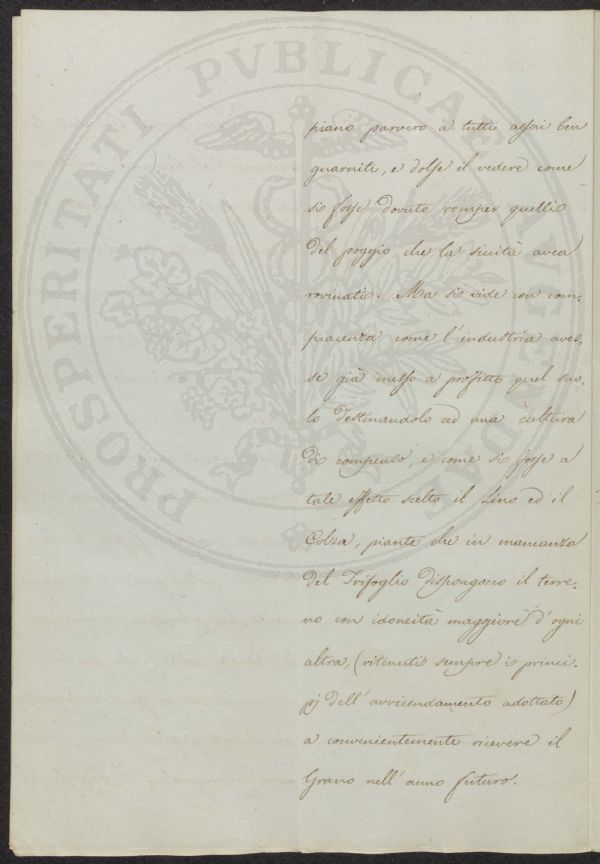 PROSPERITATI PVBLICAE AVGENDAE
piano parvero a tutti assai ben
guarniti, e dolse il vedere come
si fosse dovuto romper quelli
del poggio che la siccità avea
rovinati. Ma si vide con com-
piacenza come l'industria aves-
se già messo a profitto quel suo-
lo destinandolo ad una cultura
di compenso, e come si fosse a
tale effetto scelto il Lino ed il
Colza, piante che in mancanza
del Trifoglio dispongono il terre-
no con idoneità maggiore d'ogni
altra, (ritenuti sempre i princi-
pj dell'avvicendamento adottato)
a convenientemente ricevere il
Grano nell'anno futuro.